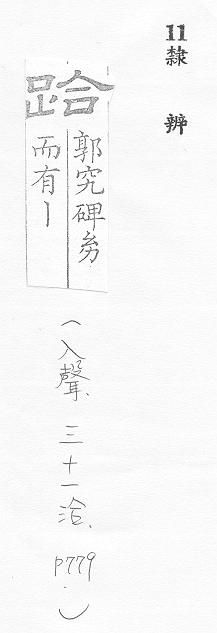 11隸 辨
跲
郭究碑幼
而有丨
(入聲、三十一洽、P779.)